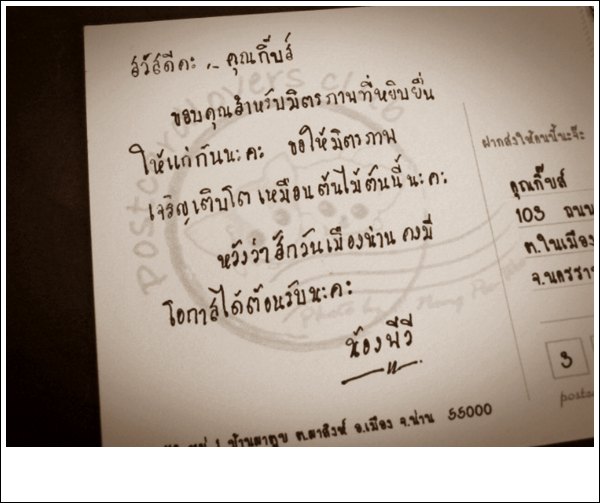 สวัสดีคะ คุณกิ๊บส์
ขอบคุณสำหรับมิตรภาพที่หยิบยื่น
ให้แก่กันนะคะ ขอให้มิตรภาพ
เจริญเติบโต เหมือนต้นไม้ต้นนี้นะคะ
หวังว่าสักวันเมืองน่าน คงมี
โอกาสได้ต้อนรับนะคะ
น้องพีวี
ม.1 บ้านผาตูบ ต.ผาสิงห์ อ.เมือง จ.น่าน 55000
postcard lovers club
Photo by
ฝากส่งให้คนนี้นะจ๊ะ
คุณกิ๊บส์
103 ถนน
ต.ในเมือง
จ.นครรา
3